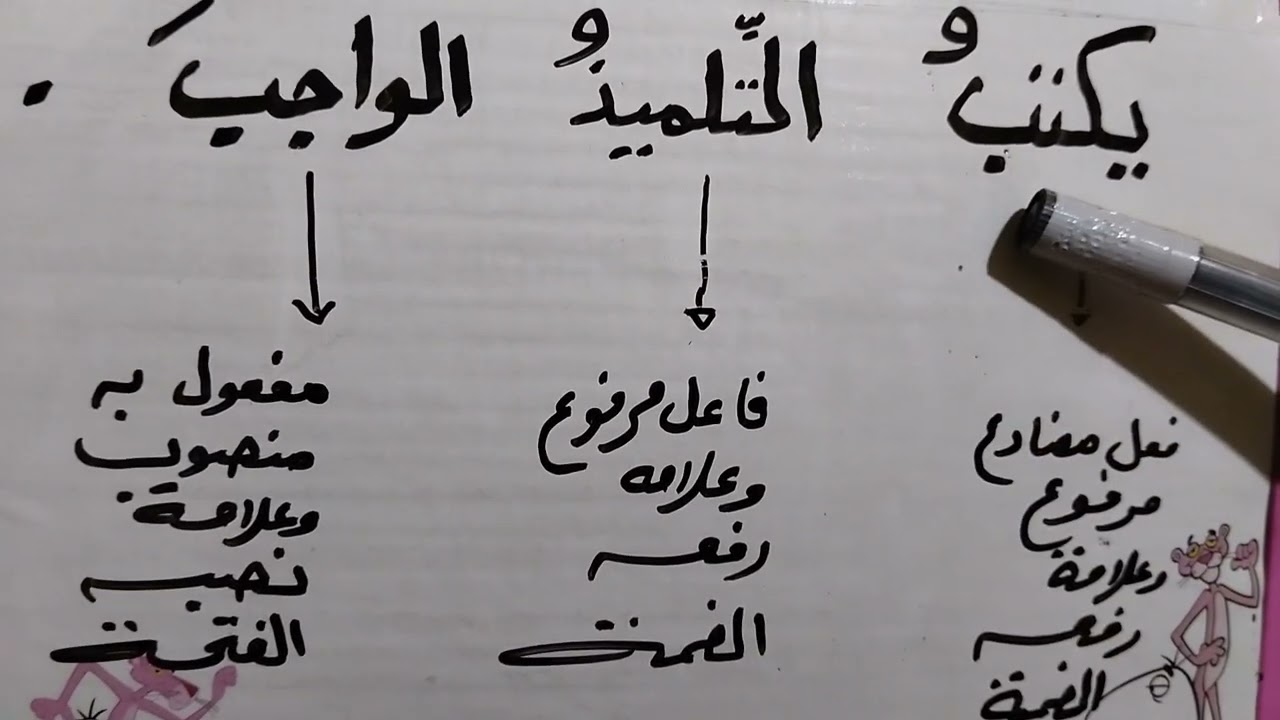 يكتبُ التِّلميذُ الواجبَ .
فعل مضارع
مرفوع
وعلامة
رفعه
الضمة
فاعل مرفوع
وعلامه
رفعه
الضمة
مفعول به
منصوب
وعلامة
نصبه
الفتحة